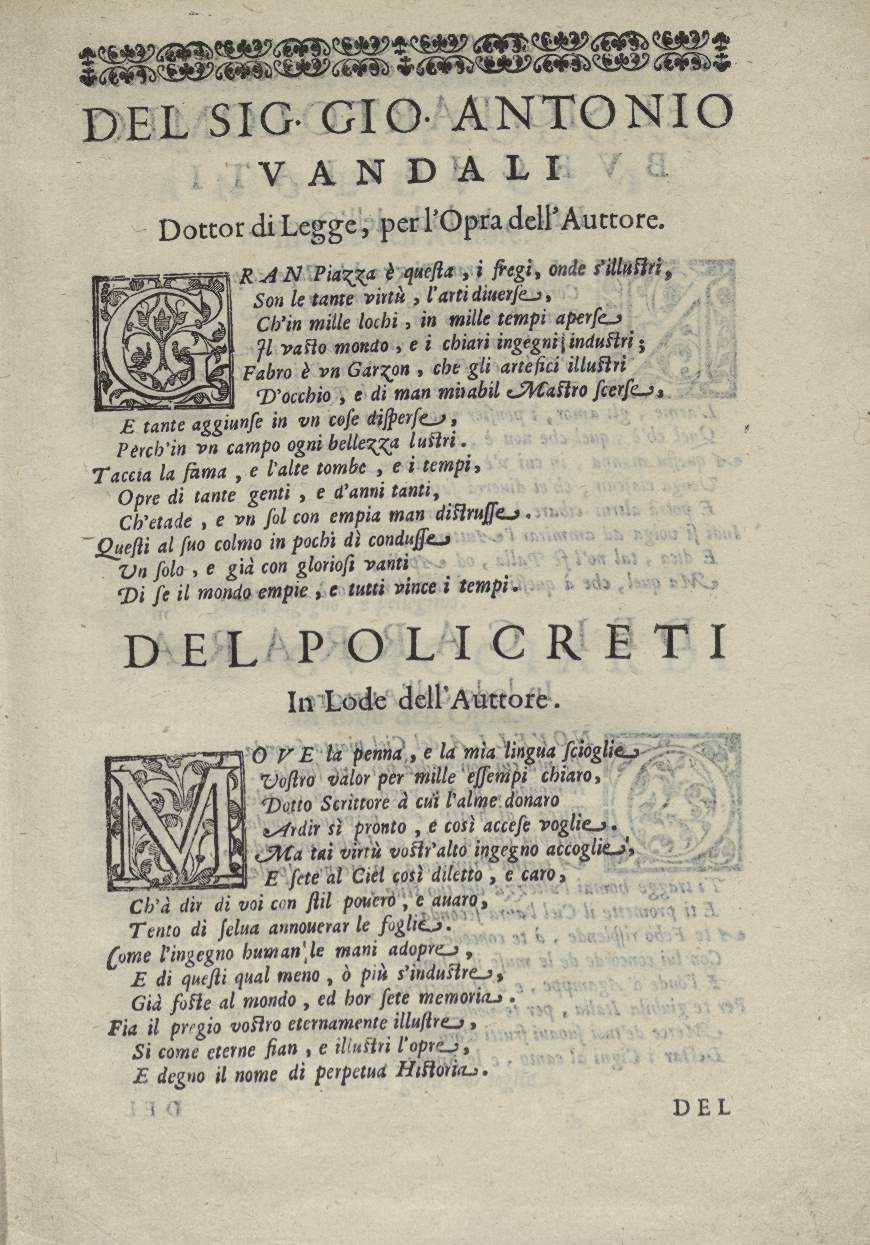 DEL SIG. GIO. ANTONIO
VANDALI
Dottor di Legge, per l'Opra dell'Auttore.
GRAN Piazza è questa, i fregi, onde s'illustri,
Son le tante virtù, l'arti diuerse,
Ch'in mille lochi, in mille tempi aperse
Il vasto mondo, e i chiari ingegni industri;
Fabro è vn Garzon, che gli artefici illustri
D'occhio, e di man mirabil Mastro scerse,
E tante aggiunse in vn cose disperse,
Perch'in vn campo ogni bellezza lustri.
Taccia la fama, e l'alte tombe, e i tempi,
Opre di tante genti, e d'anni tanti,
Ch'etade, e vn sol con empia man distrusse.
Questi al suo colmo in pochi dì condusse
Vn solo, e già con gloriosi vanti
Di se il mondo empie, e tutti vince i tempi.
DEL POLICRETI
In Lode dell'Auttore.
MOVE la penna, e la mia lingua scioglie
Vostro valor per mille essempi chiaro,
Dotto Scrittore à cui l'alme donaro
Ardir sì pronto, e così accese voglie.
Ma tai virtù vostr'alto ingegno accoglie,
E sete al Ciel così diletto, e caro,
Ch'à dir di voi con stil pouero, e auaro,
Tento di selua annouerar le foglie.
Come l'ingegno human' le mani adopre,
E di questi qual meno, ò più s'industre,
Già foste al mondo, ed hor sete memoria.
Fia il pregio vostro eternamente illustre,
Si come eterne fian, e illustri l'opre,
E degno il nome di perpetua Historia.
DEL